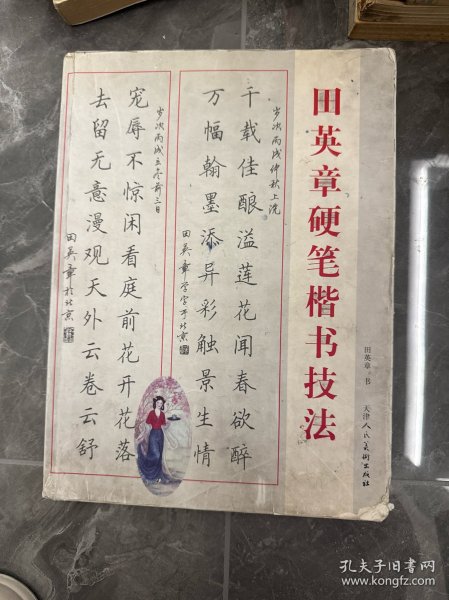 田英章硬笔楷书技法
田英章 书
天津人民美術出版社
岁次丙戌仲秋上浣
千载佳酿溢莲花闻春欲醉
万幅翰墨添异彩触景生情
田英章学字于北京
岁次丙戌立冬前三日
宠辱不惊闲看庭前花开花落
去留无意漫观天外云卷云舒
田英章于北京
孔夫子旧书网
www.kongfz.com